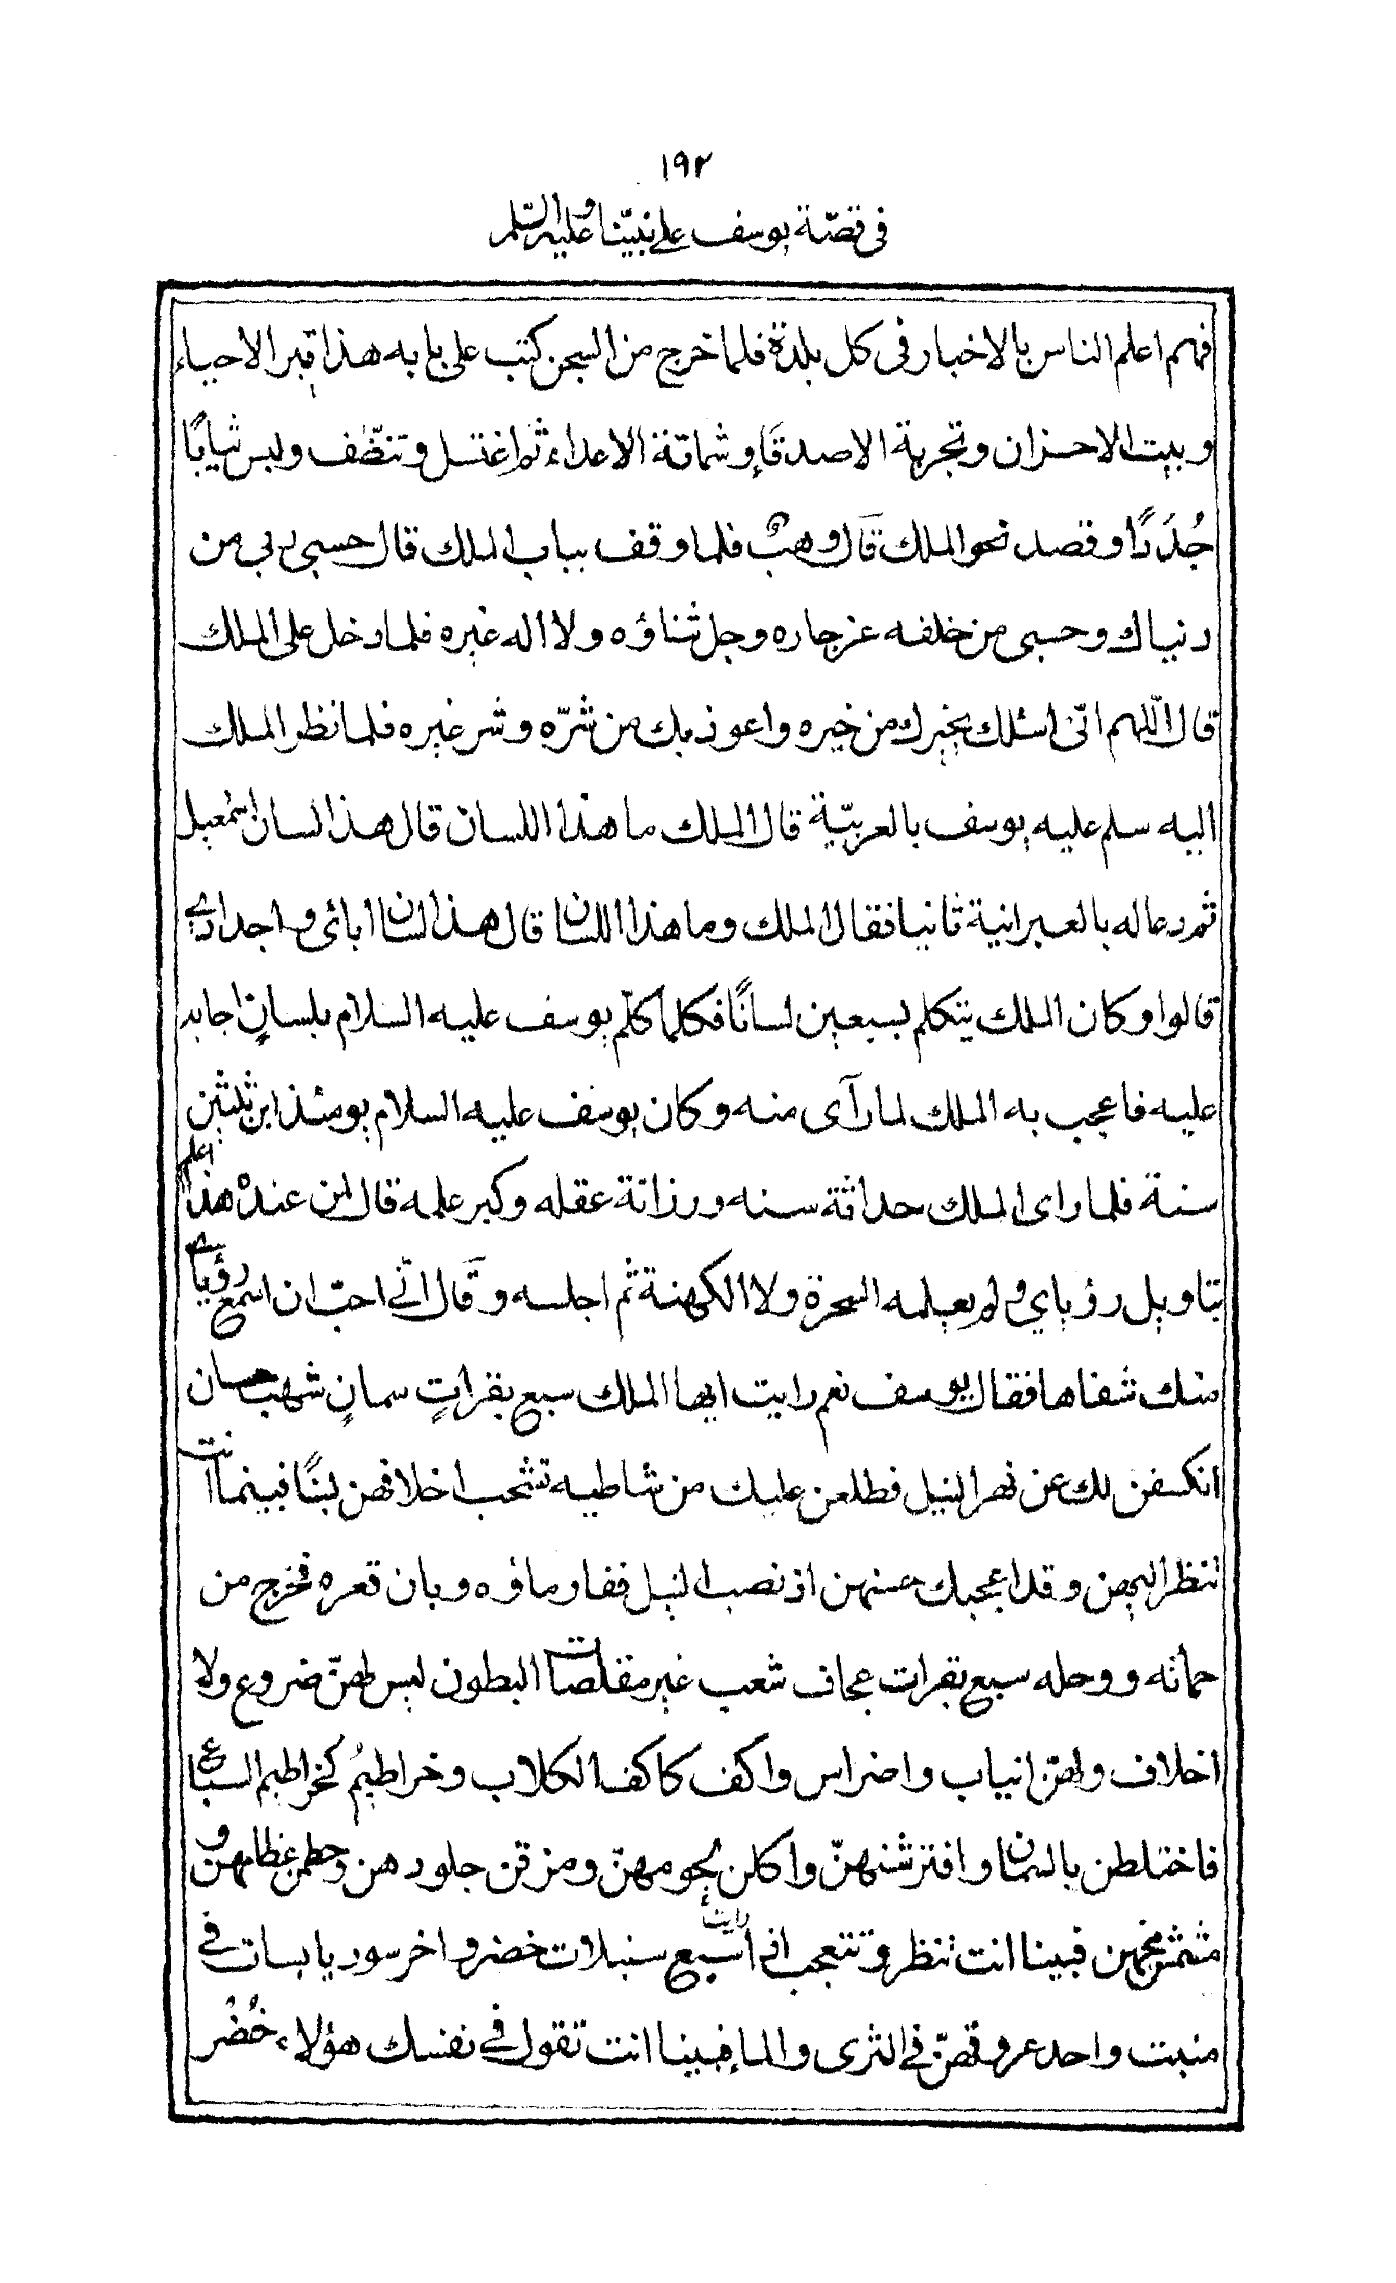 ١٩٢
فى قصّة يوسف على نبيّنا وعليه السّلم
فهم اعلم الناس بالاخبار فى كل بلدة فلما خرج من السجن كتب على بابه هذا قبر الاحياء
وبيت الاحزان وتجربة الاصدقاء وشماتة الاعداء ثم اغتسل وتنظّف ولبس ثيابًا
جُدَدًا وقصد نحو الملك قال وهبٌ فلما وقف بباب الملك قال حسبى ربى من
دنياك وحسبى من خلفه عز جاره وجل ثناؤه ولا اله غيره فلما دخل على الملك
قال اللّهم انّى اسئلك بخيرك من خيره واعوذ بك من شرّه وشر غيره فلما نظر الملك
اليه سلم عليه يوسف بالعربيّة قال الملك ما هذا اللسان قال هذا لسان اسمعيل
ثم دعا له بالعبرانية ثانيا فقال الملك وما هذا اللسان قال هذا لسان اابائى واجدادي
قالوا وكان الملك يتكلم بسبعين لسانًا فكلما كلّم يوسف عليه السلام بلسانٍ اجابه
عليه فاعجب به الملك لما رآى منه وكان يوسف عليه السلام يومئذ ابن ثلثين
سنة فلما راى الملك حداثة سنه ورزانة عقله وكبر علمه قال لمن عنده هذا اعلم
بتاويل رؤياي ولم يعلمه السحرة ولا الكهنة ثم اجلسه وقال انّي احبّ ان اسمع رؤياي
منك شفاها فقال يوسف نعم رايت ايها الملك سبع بقراتٍ سمانٍ شهب حسان
انكسفن لك عن نهر النيل فطلعن عليك من شاطيه تشخب اخلافهن لبنًا فبينما انت
تنظر اليهن وقد اعجبك حسنهن اذ نصب النيل فغار ماؤه وبان قعره فخرج من
حمائه ووحله سبع بقرات عجاف شعب غير مقلصات البطون ليس لهنّ ضروع ولا
اخلاف ولهنّ انياب واضراس واكف كاكف الكلاب وخراطيمُ كخراطيم السباع
فاختلطن بالسمان وافترشنهنّ واكلن لحومهنّ ومزقن جلودهن وحطمن عظامهن و
مشمش مخهن فبينا انت تنظر وتتعجب اذ رايت سبع سنبلات خضر واخر سود يابسات في
منبت واحد عروقهنّ في الثرى والماء فبينا انت تقول في نفسك هؤلاء خُضْر